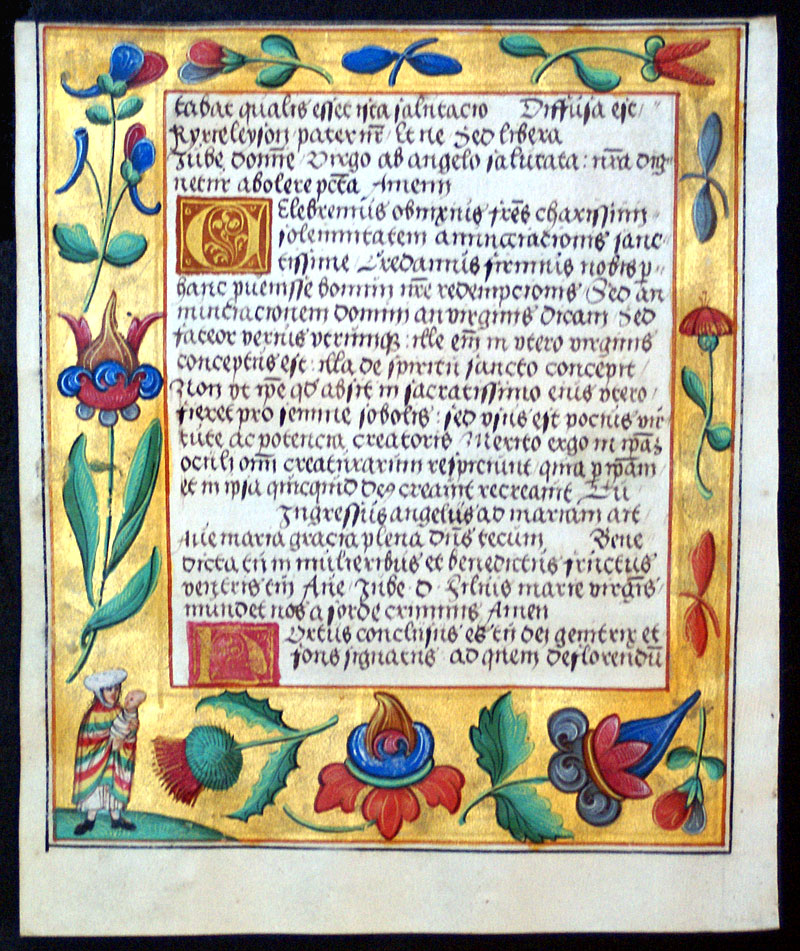 tabat qualis esset ista salutacio Diffusa est
Kyrieleyson pater nr̄ Et ne Sed libera
Jube domne Virgo ab angelo salutata : nrā dig
netur abolere pctā Amen
Celebremus obnixius frēs charissimi
solennitatem annunciacionis sanc
tissime Credamus firmius nobis p
hanc puenisse bonum nrē redempcionis Sed an
nunciacionem domini an virginis dicam Sed
fateor verius utrumq; : ille em̄ in utero virginis
conceptus est : illa de spiritu sancto concepit
Non ut ip̄e qd absit in sacratissimo eius utero
fieret pro semine sobolis : sed usus est pocius vir
tute ac potencia creatoris Merito ergo in ip̄as
oculi om̄ creaturarum respiciunt quia p ip̄am
et in ipsa quicquid deꝰ creauit recreauit Tu
Ingressus angelus ad mariam ait
Aue maria gracia plena dn̄s tecum Bene
dicta tu in mulieribus et benedictus fructus
ventris tui Aue Jube d Filius marie virgīs
mundet nos a sorde criminis Amen
Hortus conclusus es tu dei genitrix et
fons signatus ad quem deflorendū